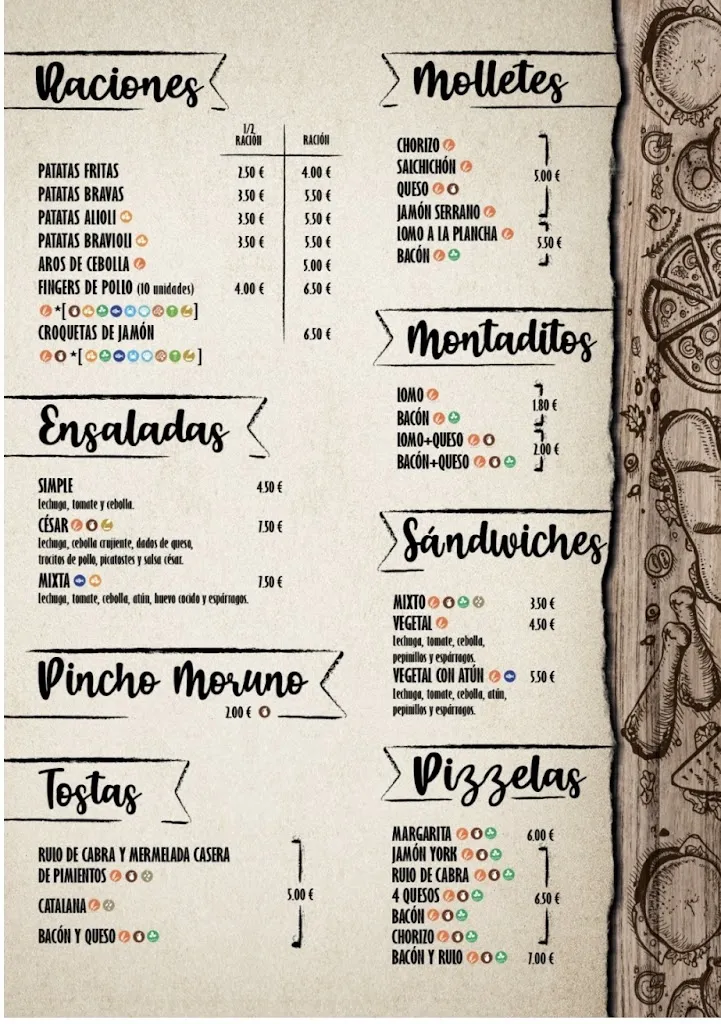 Raciones
1/2 RACIÓN RACIÓN
PATATAS FRITAS 2.50 € 4.00 €
PATATAS BRAVAS 3.50 € 5.50 €
PATATAS ALIOLI 3.50 € 5.50 €
PATATAS BRAVIOLI 3.50 € 5.50 €
AROS DE CEBOLLA 5.00 €
FINGERS DE POLLO (10 unidades) 4.00 € 6.50 €
*[ ]
CROQUETAS DE JAMÓN 6.50 €
*[ ]
Ensaladas
SIMPLE 4.50 €
lechuga, tomate y cebolla.
CÉSAR 7.50 €
lechuga, cebolla crujiente, dados de queso,
trocitos de pollo, picatostes y salsa césar.
MIXTA 7.50 €
lechuga, tomate, cebolla, atún, huevo cocido y espárragos.
Pincho Moruno
2.00 €
Tostas
RULO DE CABRA Y MERMELADA CASERA
DE PIMIENTOS
5.00 €
CATALANA
BACÓN Y QUESO
Molletes
CHORIZO
SALCHICHÓN
5.00 €
QUESO
JAMÓN SERRANO
LOMO A LA PLANCHA
5.50 €
BACÓN
Montaditos
LOMO
1.80 €
BACÓN
LOMO+QUESO
2.00 €
BACÓN+QUESO
Sándwiches
MIXTO 3.50 €
VEGETAL 4.50 €
lechuga, tomate, cebolla,
pepinillos y espárragos.
VEGETAL CON ATÚN 5.50 €
lechuga, tomate, cebolla, atún,
pepinillos y espárragos.
Pizzelas
MARGARITA 6.00 €
JAMÓN YORK
RULO DE CABRA
4 QUESOS 6.50 €
BACÓN
CHORIZO
BACÓN Y RULO 7.00 €